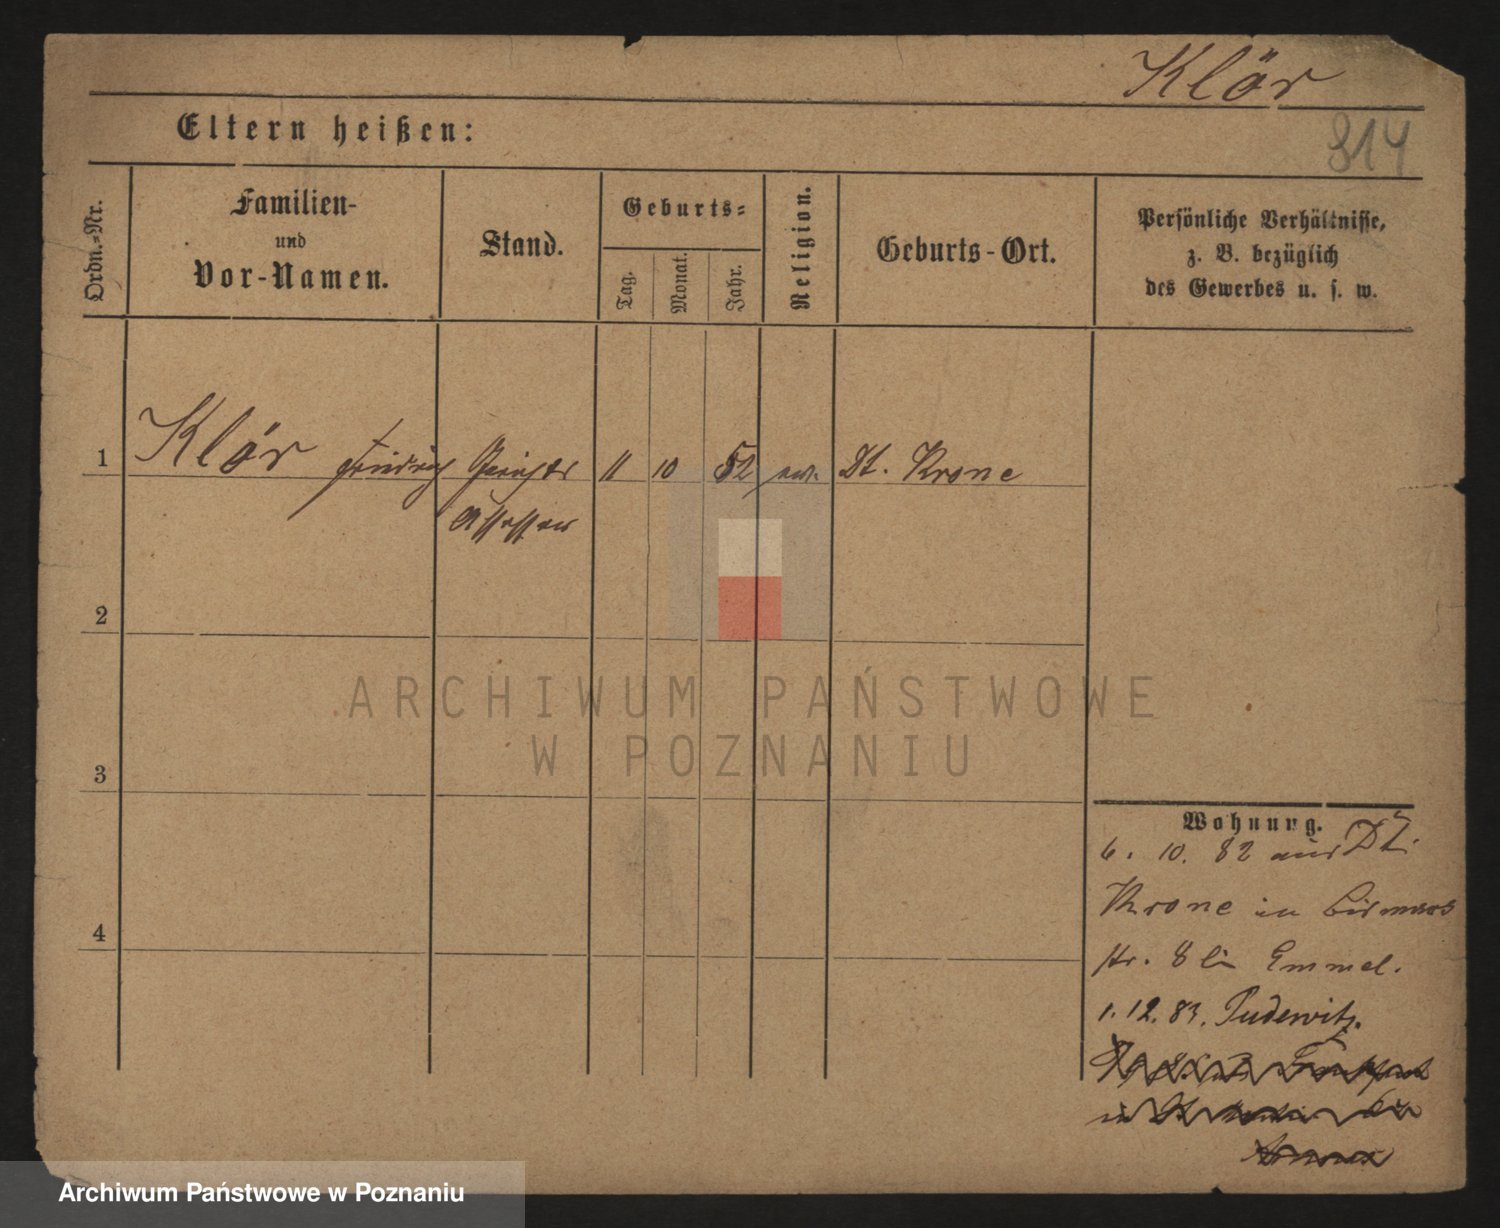 Klör
Eltern heißen:
314
Ordn.-Nr.
Familien-
und
Vor-Namen.
Stand.
Geburts-
Tag.
Monat.
Jahr.
Religion.
Geburts-Ort.
Persönliche Verhältnisse,
z. B. bezüglich
des Gewerbes u. s. w.
1 Klör Friedrich Gerichts 11 10 52 ev. Dt. Krone
Assessor
2
3
4
ARCHIWUM PAŃSTWOWE
W POZNANIU
Wohnung.
6. 10. 82 aus Dt.
Krone in Bismarck
str. 8 bei Emmel.
1. 12. 83. Pudewitz.
Archiwum Państwowe w Poznaniu